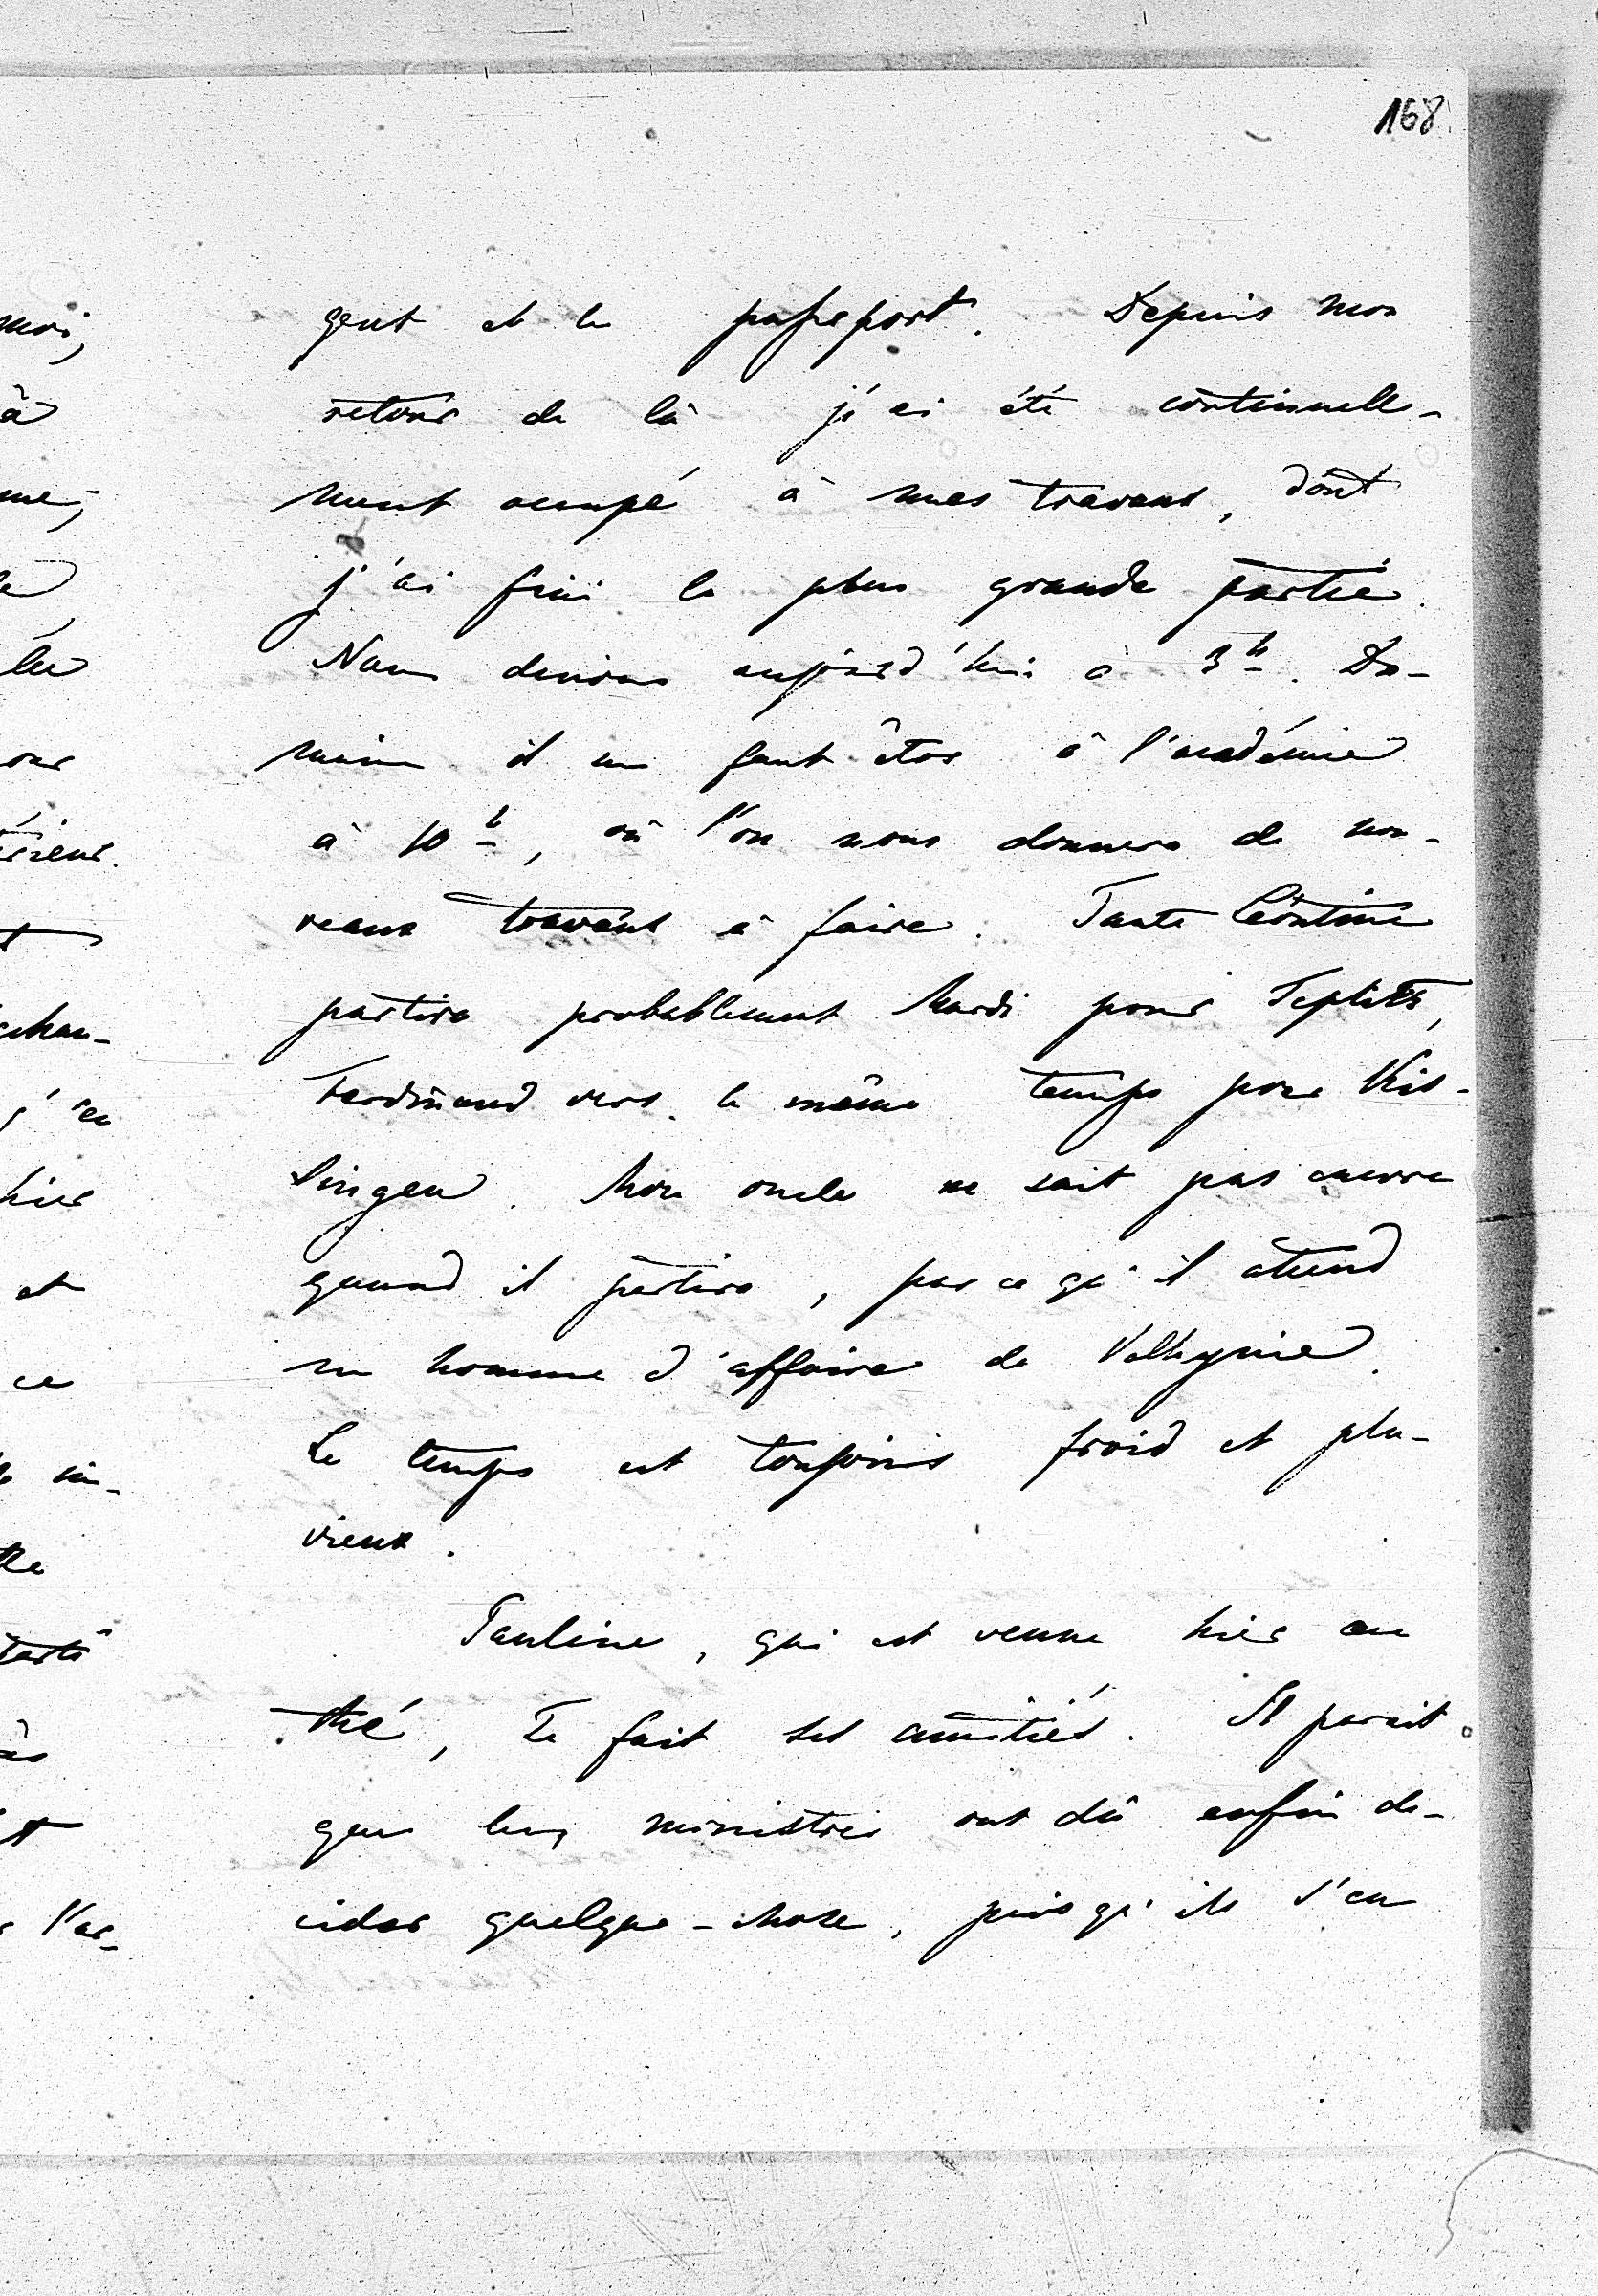 168.
gent et le passeport. Depuis mon
retour de là j'ai été continuelle-
ment occupé à mes travaux, dont
j'ai fini la plus grande partie.
Nous dinons aujourd'hui à 3h. De-
main il me faut être à l'académie
à 10h, où l'on nous donnera de nou-
veaux travaux à faire. Tante Léontine
partira probablement Mardi pour Teplitz,
Ferdinand vers le même temps pour Kis-
singen. Mon oncle ne sait pas encore
quand il partira, parce qu'il attend
un homme d'affaire de Volhynie.
Le temps est toujours froid et plu-
vieux.
Pauline, qui est venue hier au
thé, Te fait ses amitiés. Il parait
que les ministres ont dû enfin dé-
cider quelque-chose, puisqu'ils s'en
moi,
à
me,
ous
érieur.
chan-
j'ai
hier
et
ce
l'ar-